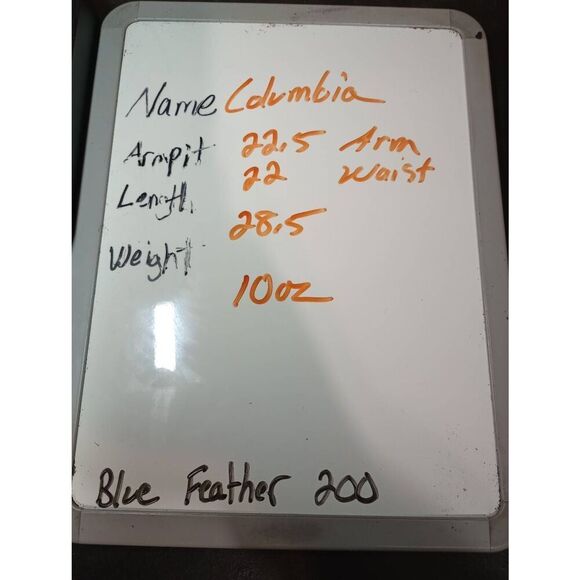 Name Columbia
Armpit 22.5 Arm
22 Waist
Length 28.5
Weight 10oz
Blue Feather 200